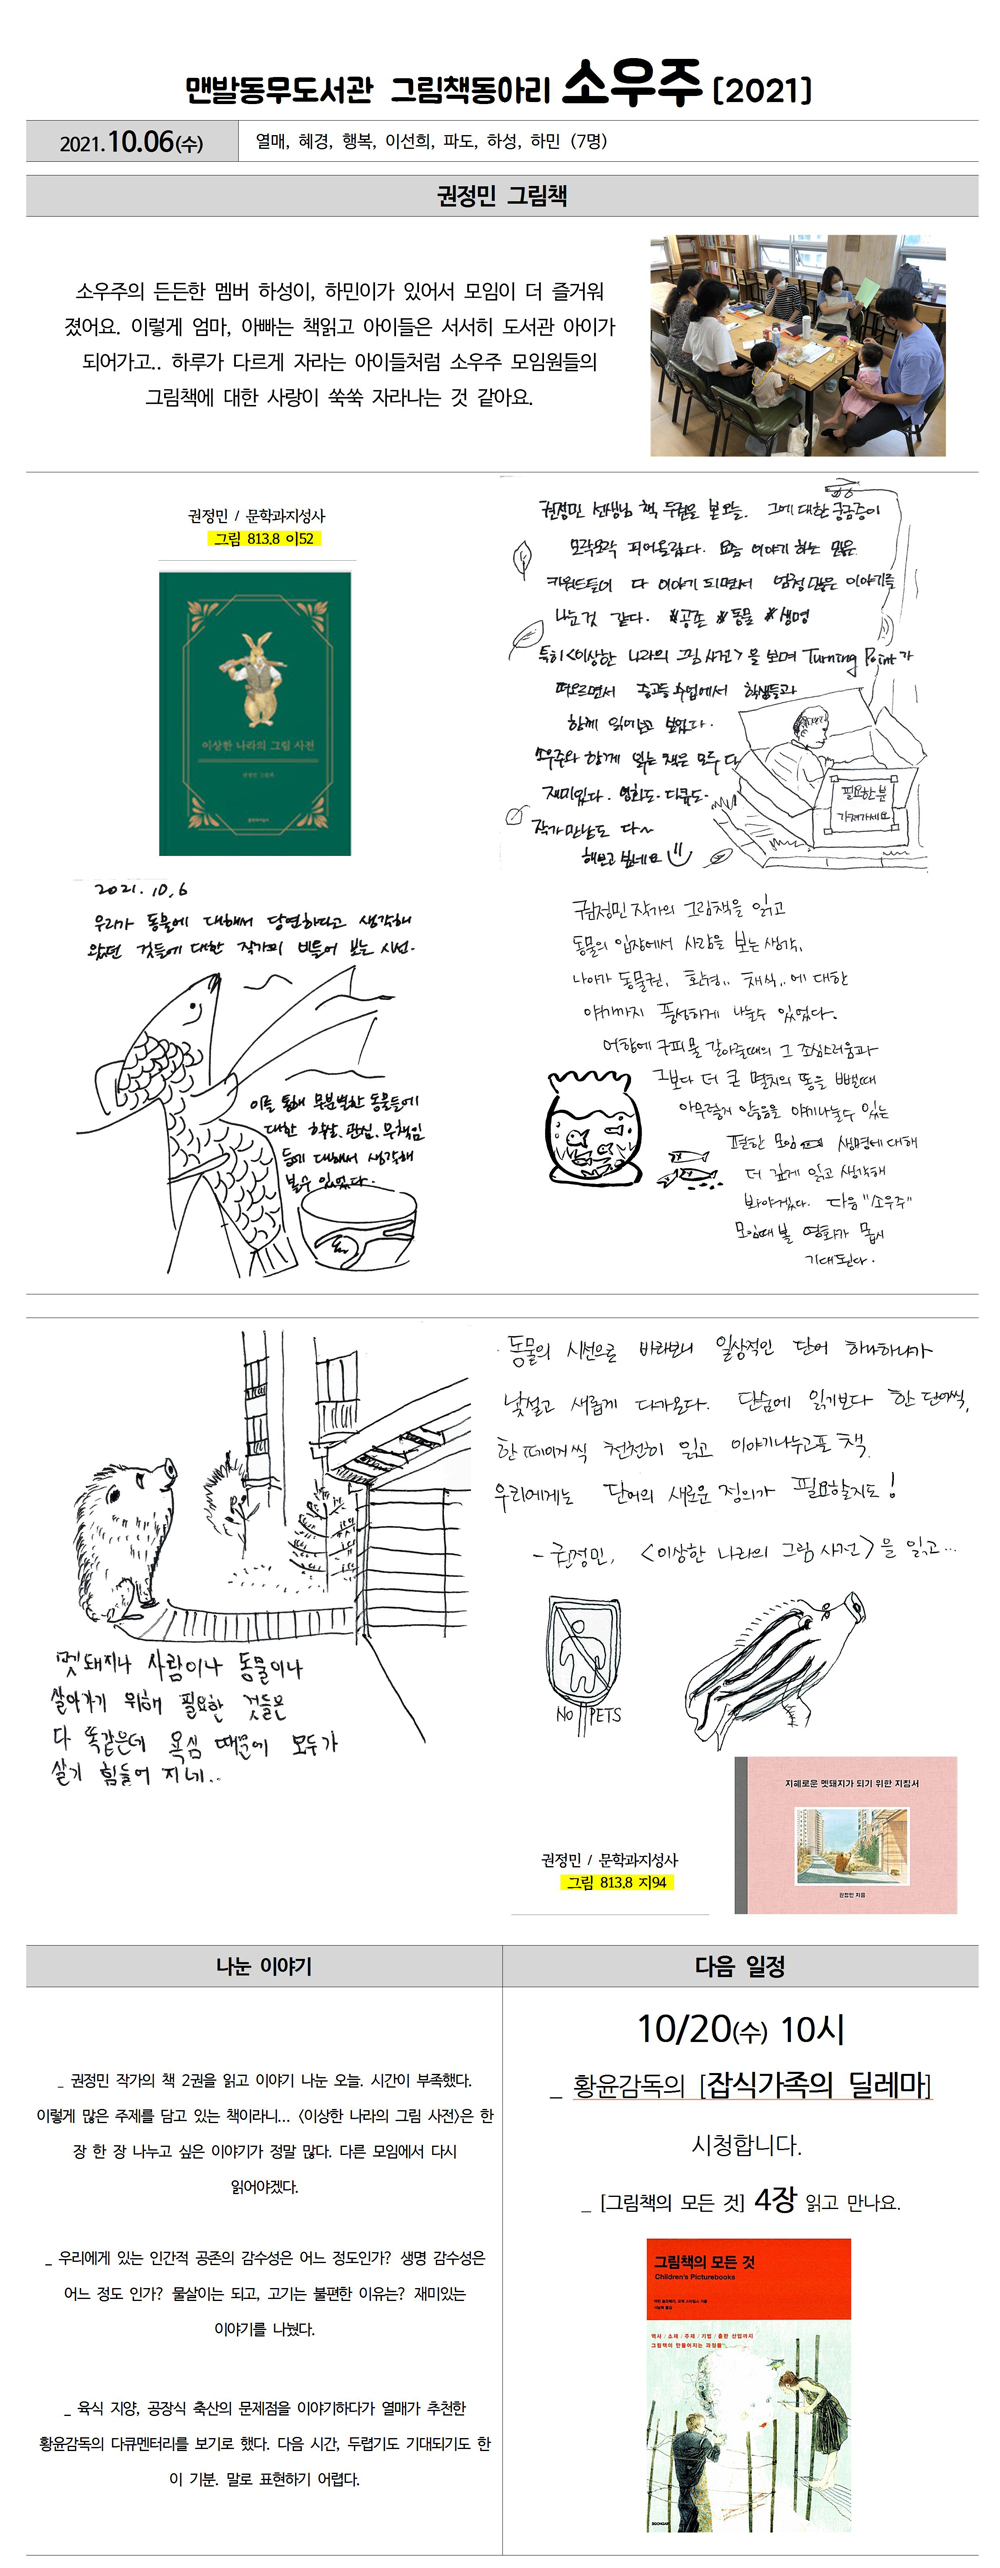 맨발동무도서관 그림책동아리 소우주 [2021]
2021.10.06(수)
열매, 혜경, 행복, 이선희, 파도, 하성, 하민 (7명)
권정민 그림책
소우주의 든든한 멤버 하성이, 하민이가 있어서 모임이 더 즐거워
졌어요. 이렇게 엄마, 아빠는 책읽고 아이들은 서서히 도서관 아이가
되어가고.. 하루가 다르게 자라는 아이들처럼 소우주 모임원들의
그림책에 대한 사랑이 쑥쑥 자라나는 것 같아요.
권정민 / 문학과지성사
그림 813.8 이52
이상한 나라의 그림 사전
권정민 그림책
문학과지성사
권정민 선생님 책 두권을 본 오늘. 그에 대한 궁금증이
모락모락 피어올랐다. 요즘 이야기 하는 많은
키워드들이 다 이야기 되면서 엄청 많은 이야기를
나눈 것 같다. #공존 #동물 #생명
특히 <이상한 나라의 그림 사전>을 보며 Turning Point가
떠오르면서 중고등 수업에서 학생들과
함께 읽어보고 싶었다.
소우주와 함께 읽는 책은 모두 다
재미있다. 영화도. 다큐도.
작가만남도 다~
해보고 싶네요
필요한 분
가져가세요
2021. 10. 6
우리가 동물에 대해서 당연하다고 생각해
왔던 것들에 대한 작가의 비틀어 보는 시선.
이를 통해 무분별한 동물들에
대한 학살, 관심, 무책임
등에 대해서 생각해
볼수 있었다.
권정민 작가의 그림책을 읽고
동물의 입장에서 사람을 보는 생각,
나아가 동물권, 환경,, 채식,, 에 대한
야기까지 풍성하게 나눌수 있었다.
어항에 구피 물 갈아줄때의 그 조심스러움과
그보다 더 큰 멸치의 똥을 뺄때
아무렇지 않음을 야기나눌수 있는
편한 모임 생명에 대해
더 깊게 읽고 생각해
봐야겠다. 다음 "소우주"
모임때 볼 영화가 몹시
기대된다.
멧돼지나 사람이나 동물이나
살아가기 위해 필요한 것들은
다 똑같은데 욕심 때문에 모두가
살기 힘들어 지네..
동물의 시선으로 바라보니 일상적인 단어 하나하나가
낯설고 새롭게 다가온다. 단숨에 읽기보다 한 단어씩,
한 페이지씩 천천히 읽고 이야기나누고픈 책.
우리에게는 단어의 새로운 정의가 필요할지도!
- 권정민, <이상한 나라의 그림 사전>을 읽고...
NO PETS
지혜로운 멧돼지가 되기 위한 지침서
권정민 지음
권정민 / 문학과지성사
그림 813.8 지94
나눈 이야기
_ 권정민 작가의 책 2권을 읽고 이야기 나눈 오늘. 시간이 부족했다.
이렇게 많은 주제를 담고 있는 책이라니... <이상한 나라의 그림 사전>은 한
장 한 장 나누고 싶은 이야기가 정말 많다. 다른 모임에서 다시
읽어야겠다.
_ 우리에게 있는 인간적 공존의 감수성은 어느 정도인가? 생명 감수성은
어느 정도 인가? 물살이는 되고, 고기는 불편한 이유는? 재미있는
이야기를 나눴다.
_ 육식 지양, 공장식 축산의 문제점을 이야기하다가 열매가 추천한
황윤감독의 다큐멘터리를 보기로 했다. 다음 시간, 두렵기도 기대되기도 한
이 기분. 말로 표현하기 어렵다.
다음 일정
10/20(수) 10시
_ 황윤감독의 [잡식가족의 딜레마]
시청합니다.
_ [그림책의 모든 것] 4장 읽고 만나요.
그림책의 모든 것
Children's Picturebooks
역사 / 소재 / 주제 / 기법 / 출판 산업까지
그림책이 만들어지는 과정들